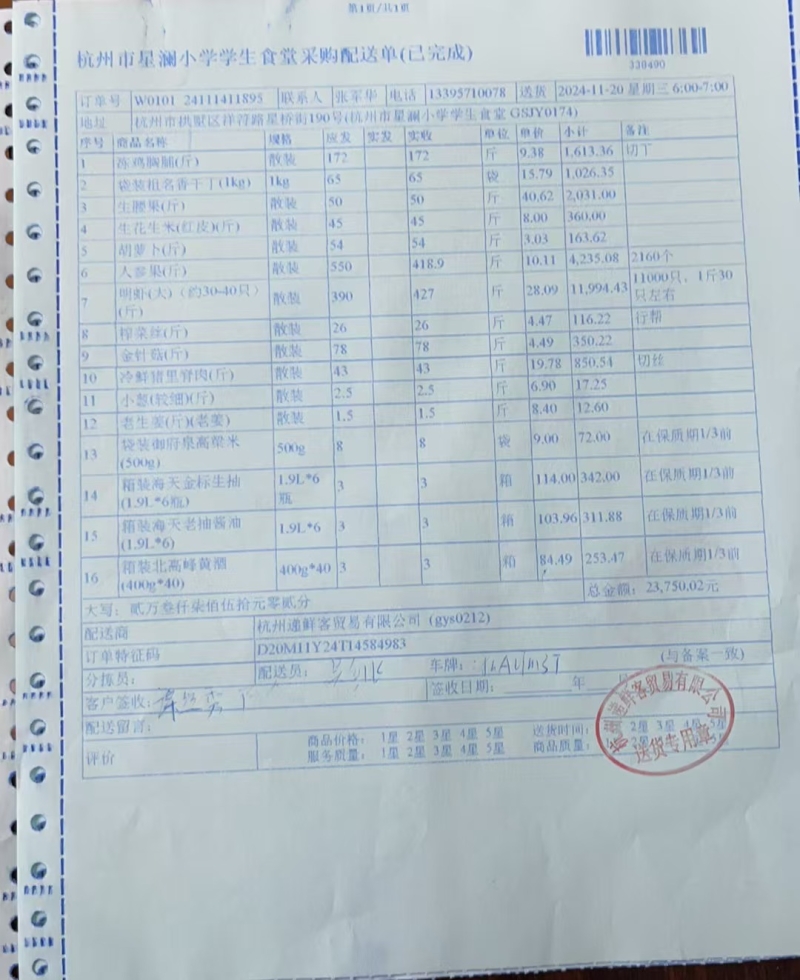 第1页/共1页
杭州市星澜小学学生食堂采购配送单(已完成)
330490
订单号 W0101 24111411895 联系人 张军华 电话 13395710078 送货 2024-11-20 星期三 6:00-7:00
地址 杭州市拱墅区祥符路星桥街190号(杭州市星澜小学学生食堂 GSJY0174)
序号 商品名称 规格 应发 实发 实收 单位 单价 小计 备注
1 冻鸡胸脯(斤) 散装 172 172 斤 9.38 1,613.36 切丁
2 袋装祖名香干丁(1kg) 1kg 65 65 袋 15.79 1,026.35
3 生腰果(斤) 散装 50 50 斤 40.62 2,031.00
4 生花生米(红皮)(斤) 散装 45 45 斤 8.00 360.00
5 胡萝卜(斤) 散装 54 54 斤 3.03 163.62
6 人参果(斤) 散装 550 418.9 斤 10.11 4,235.08 2160个
7 明虾(大)〈约30-40只〉(斤) 散装 390 427 斤 28.09 11,994.43 11000只, 1斤30只左右
8 榨菜丝(斤) 散装 26 26 斤 4.47 116.22 行帮
9 金针菇(斤) 散装 78 78 斤 4.49 350.22
10 冷鲜猪里脊肉(斤) 散装 43 43 斤 19.78 850.54 切丝
11 小葱(较细)(斤) 散装 2.5 2.5 斤 6.90 17.25
12 老生姜(斤)(老姜) 散装 1.5 1.5 斤 8.40 12.60
13 袋装御府泉高粱米(500g) 500g 8 8 袋 9.00 72.00 在保质期1/3前
14 箱装海天金标生抽(1.9L*6瓶) 1.9L*6瓶 3 3 箱 114.00 342.00 在保质期1/3前
15 箱装海天老抽酱油(1.9L*6) 1.9L*6 3 3 箱 103.96 311.88 在保质期1/3前
16 箱装北高峰黄酒(400g*40) 400g*40 3 3 箱 84.49 253.47 在保质期1/3前
总金额: 23,750.02元
大写: 贰万叁仟柒佰伍拾元零贰分
配送商 杭州递鲜客贸易有限公司 (gys0212)
订单特征码 D20M11Y24T14584983
分拣员: 配送员: 车牌: (与备案一致)
客户签收: 签收日期: 年
配送留言:
评价 商品价格: 1星 2星 3星 4星 5星 送货时间: 2星 3星 4星 5星
服务质量: 1星 2星 3星 4星 5星 商品质量:
杭州递鲜客贸易有限公司
送货专用章